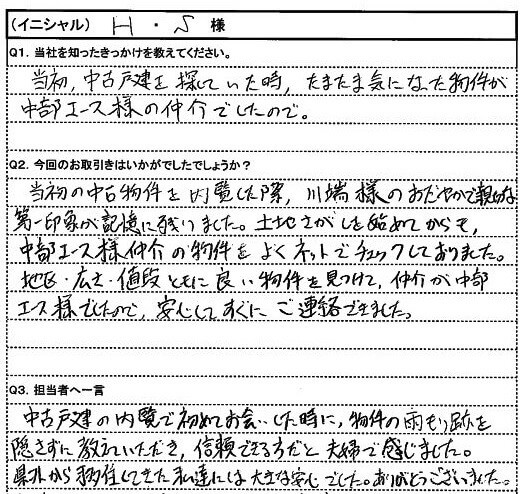 (イニシャル) H ・ S 様
Q1. 当社を知ったきっかけを教えてください。
当初、中古戸建を探していた時、たまたま気になった物件が
中部エース様の仲介でしたので。
Q2. 今回のお取引きはいかがでしたでしょうか?
当初の中古物件を内覧した際、川端様のおだやかで親切な
第一印象が記憶に残りました。土地さがしを始めてからも、
中部エース様仲介の物件をよくネットでチェックしておりました。
地区・広さ・値段ともに良い物件を見つけて、仲介が中部
エース様でしたので、安心してすぐにご連絡できました。
Q3. 担当者へ一言
中古戸建の内覧で初めてお会いした時に、物件の雨もり跡を
隠さずに教えていただき、信頼できる方だと夫婦で感じました。
県外から移住してきた私達には大きな安心でした。ありがとうございました。